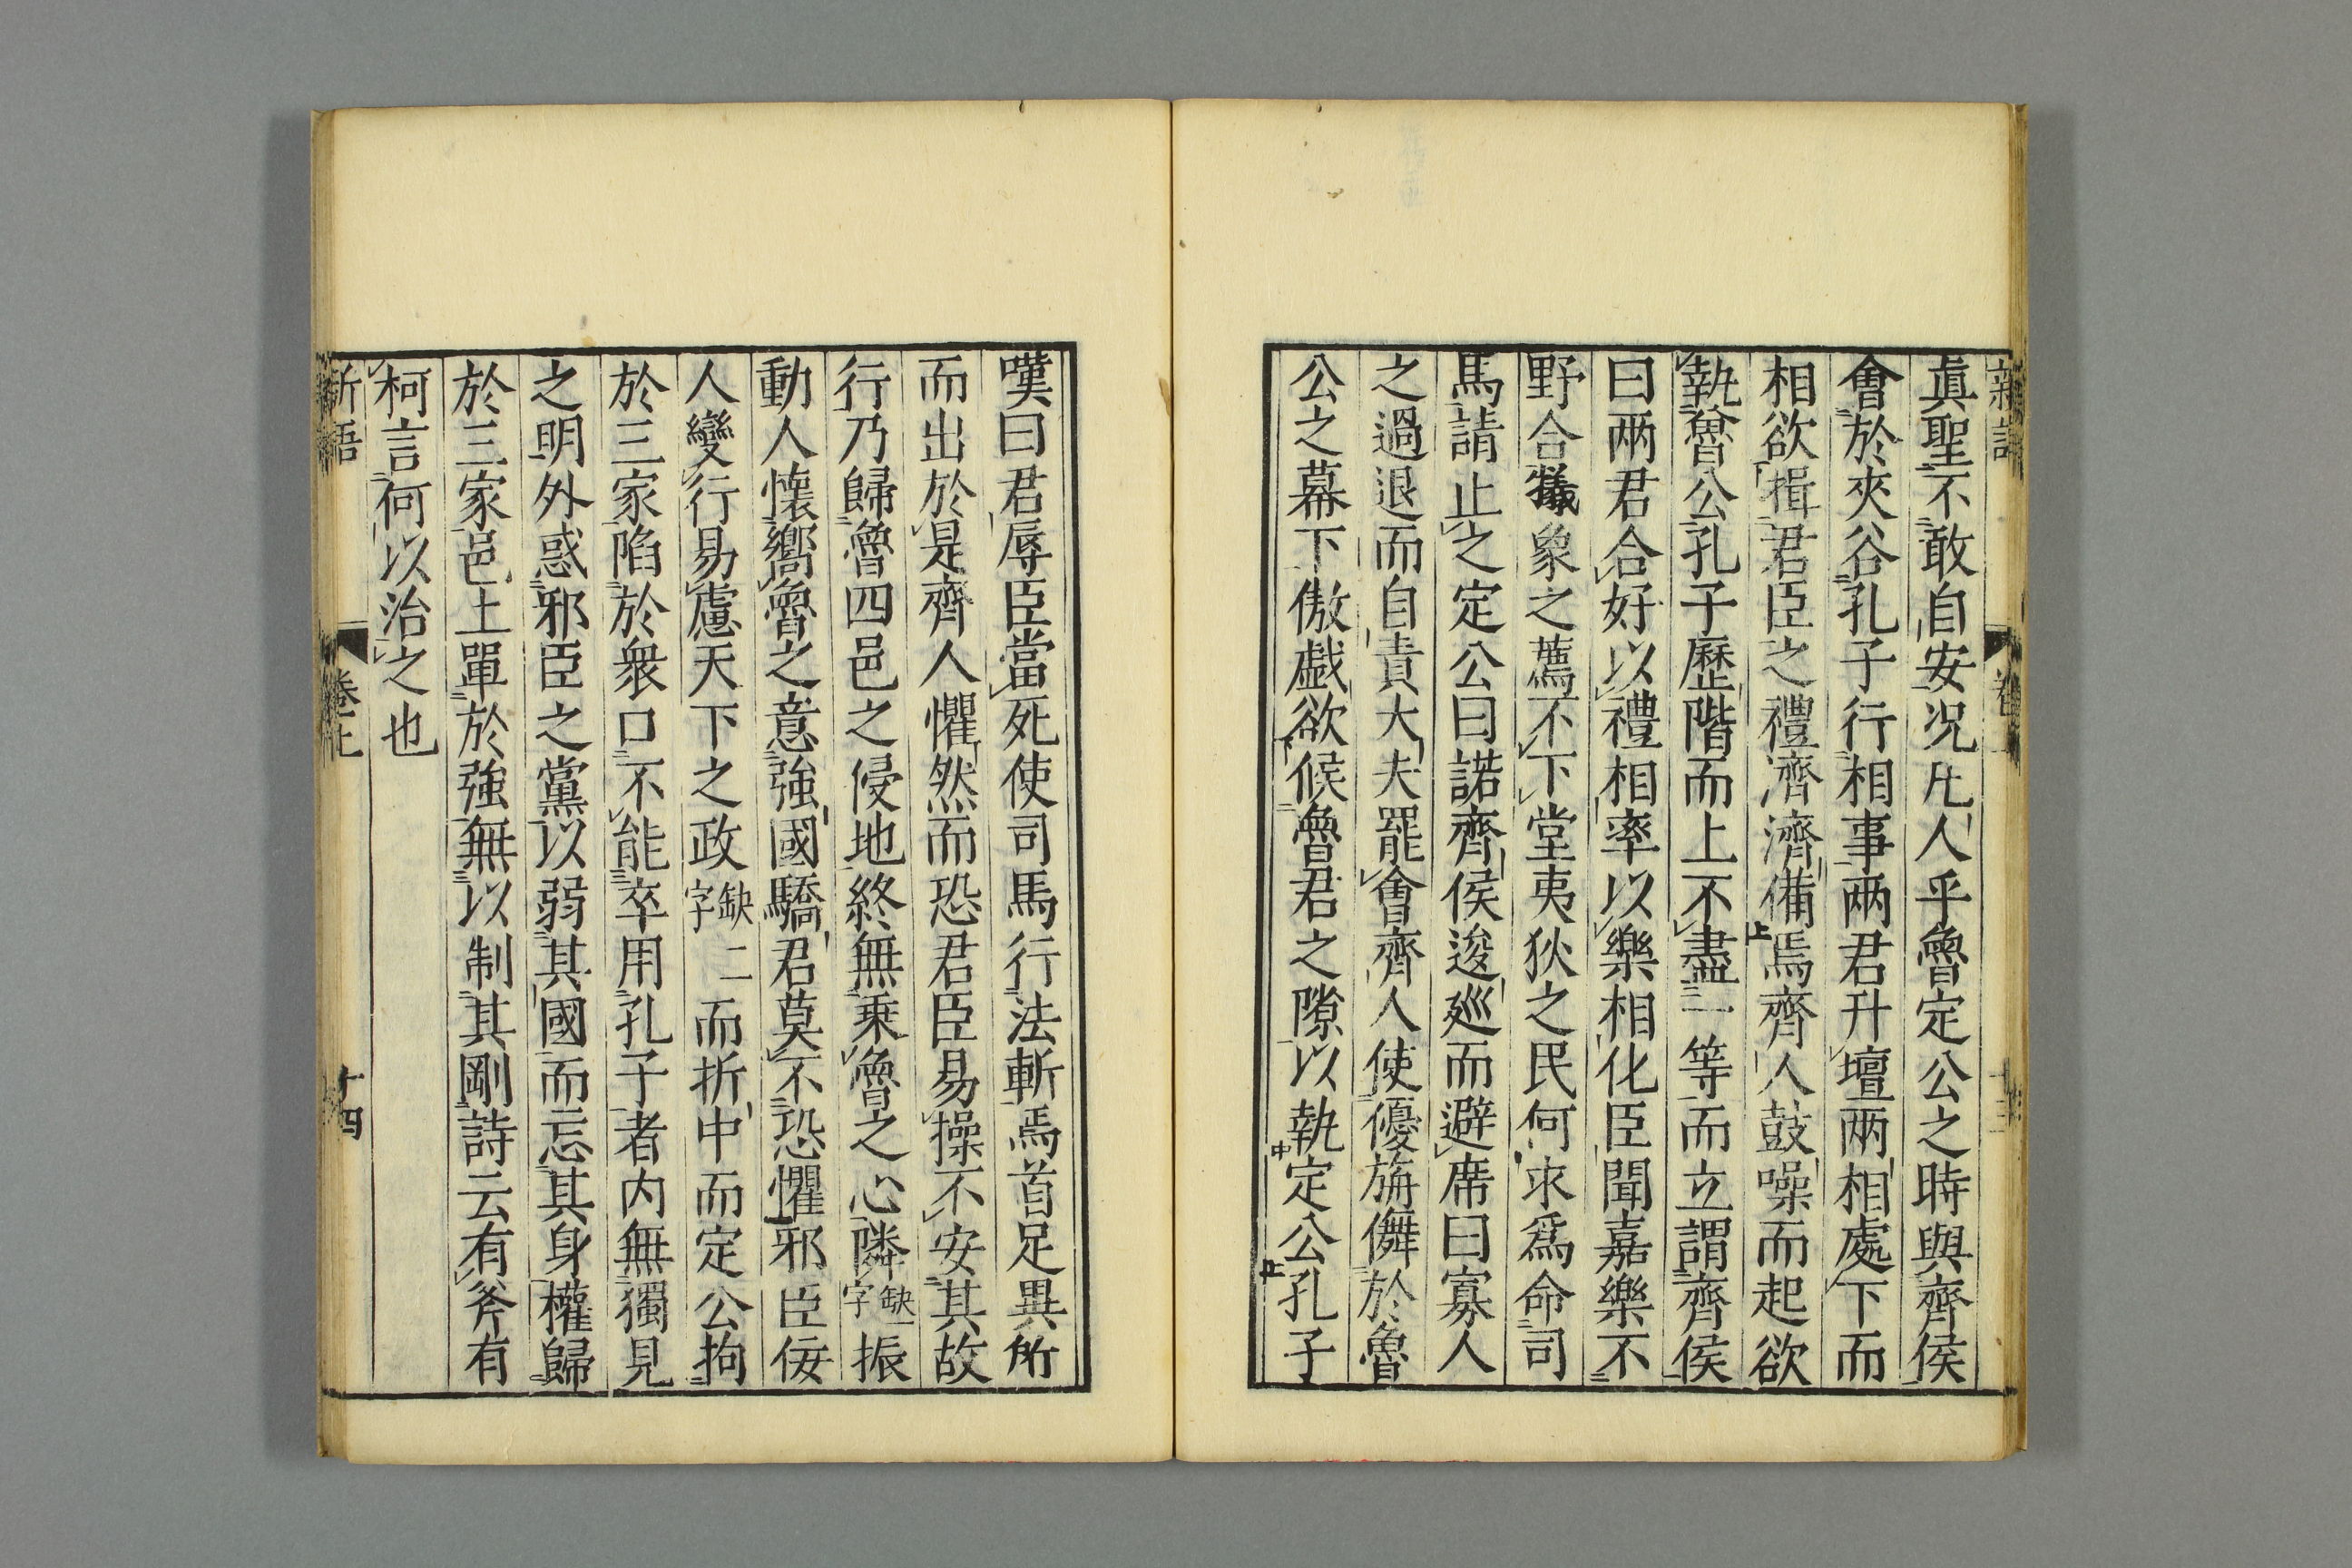 眞聖不敢自安况凡人乎魯定公之時與齊侯
會於夾谷孔子行相事两君升壇兩相處下而
相欲揖君臣之禮濟濟備焉齊人鼓噪而起欲
執魯公孔子歷階而上不盡一等而立謂齊侯
曰兩君合好以禮相率以樂相化臣聞嘉樂不
野合犧象之薦不下堂夷狄之民何求爲命司
馬請止之定公曰諾齊侯逡廵而避席曰寡人
之過退而自責大夫罷會齊人使優旃儛於魯
公之幕下傲戯欲候魯君之隙以執定公孔子
嘆曰君辱臣當死使司馬行法斬焉首足異所
而出於是齊人懼然而恐君臣易操不安其故
行乃歸魯四邑之侵地終無乗魯之心隣缺一字振
動人懐嚮魯之意強國驕君莫不恐懼邪臣佞
人變行易慮天下之政缺二字而折中而定公拘
於三家陷於衆口不能卒用孔子者内無獨見
之明外惑邪臣之黨以弱其國而忘其身權歸
於三家邑土單於強無以制其剛詩云有斧有
柯言何以治之也
新語 卷上 十四